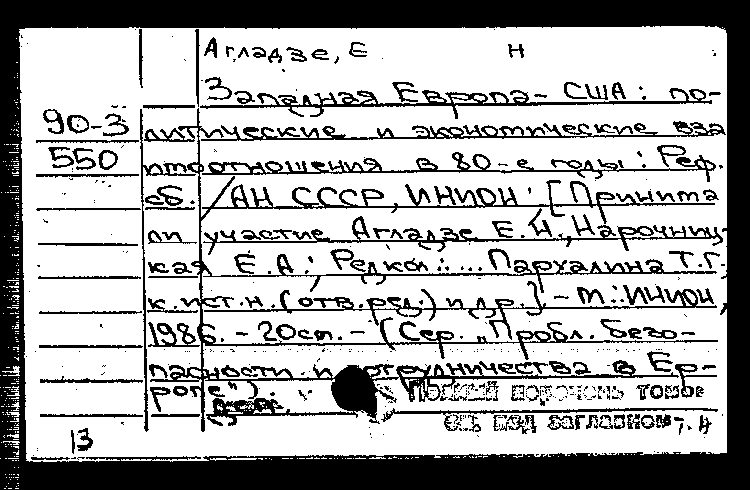 Агладзе, Е Н
Западная Европа - США : по-
90-3 литические и экономические вза
550 имоотношения в 80-е годы : Реф.
сб. / АН СССР, ИНИОН ; [Приняти
ли участие Агладзе Е.Н., Нарочниц-
кая Е.А.; Редкол.: ... Пархалина Т.Г.,
к.ист.н. (отв.ред.) и др.] - М.: ИНИОН,
1986. - 20см. - (Сер. "Пробл. безо-
пасности и сотрудничества в Ев-
ропе").
Полный перечень томов
см. под заглавием
13